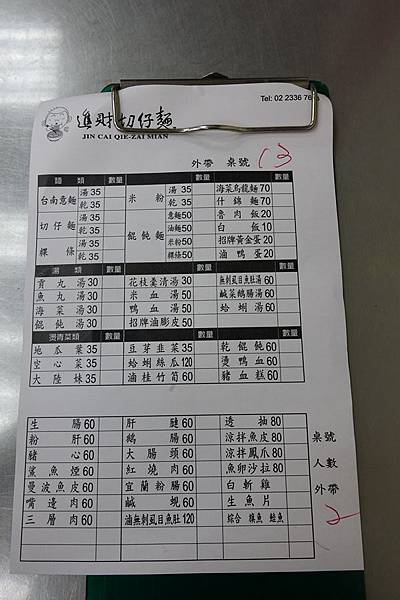 Tel: 02 2336 76
進財切仔麵
JIN CAI QIE-ZAI MIAN
外帶 桌號 13
麵類 數量 數量 數量
台南意麵 湯35 米粉 湯35 海菜烏龍麵70
乾35 乾35 什錦麵70
切仔麵 湯35 餛飩麵 意麵50 魯肉飯20
乾35 油麵50 白飯10
粿條 湯35 米粉50 招牌黃金蛋20
乾35 粿條50 滷鴨蛋20
湯類 數量 數量 數量
貢丸湯30 花枝羹清湯30 無刺虱目魚肚湯60
魚丸湯30 米血湯50 鹹菜鵝腸湯60
海菜湯30 鴨血湯50 蛤蜊湯60
餛飩湯30 招牌滷膨皮50
燙青菜類 數量 數量 數量
地瓜葉35 豆芽韭菜35 乾餛飩60
空心菜35 蛤蜊絲瓜120 燙鴨血60
大陸妹35 滷桂竹筍60 豬血糕60
生腸60 肝腱60 透抽80
粉肝60 鵝腸60 涼拌魚皮80
豬心60 大腸頭60 涼拌鳳爪80
鯊魚煙60 紅燒肉60 魚卵沙拉80
曼波魚皮60 宜蘭粉腸60 白斬雞
嘴邊肉60 鹹蜆60 生魚片
三層肉60 滷無刺虱目魚肚120 綜合 旗魚 鮭魚
桌號
人數
外帶
2